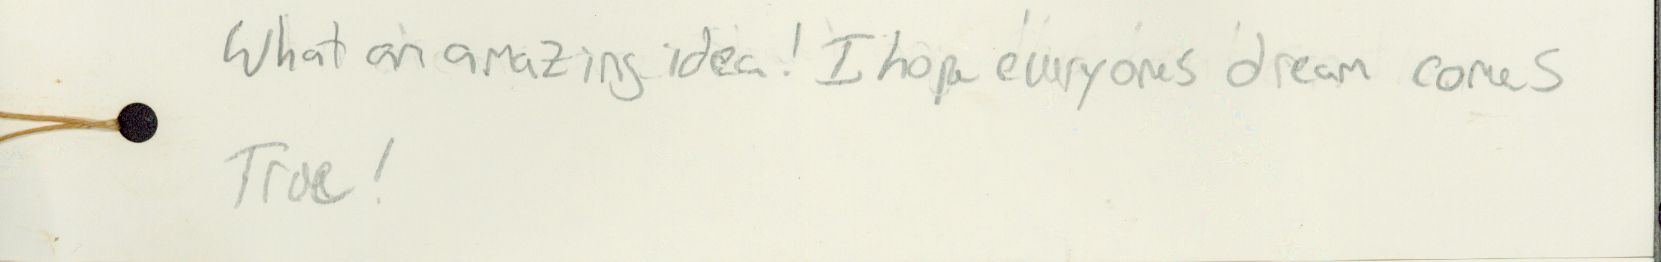 What an amazing idea! I hope everyones dream comes
True!